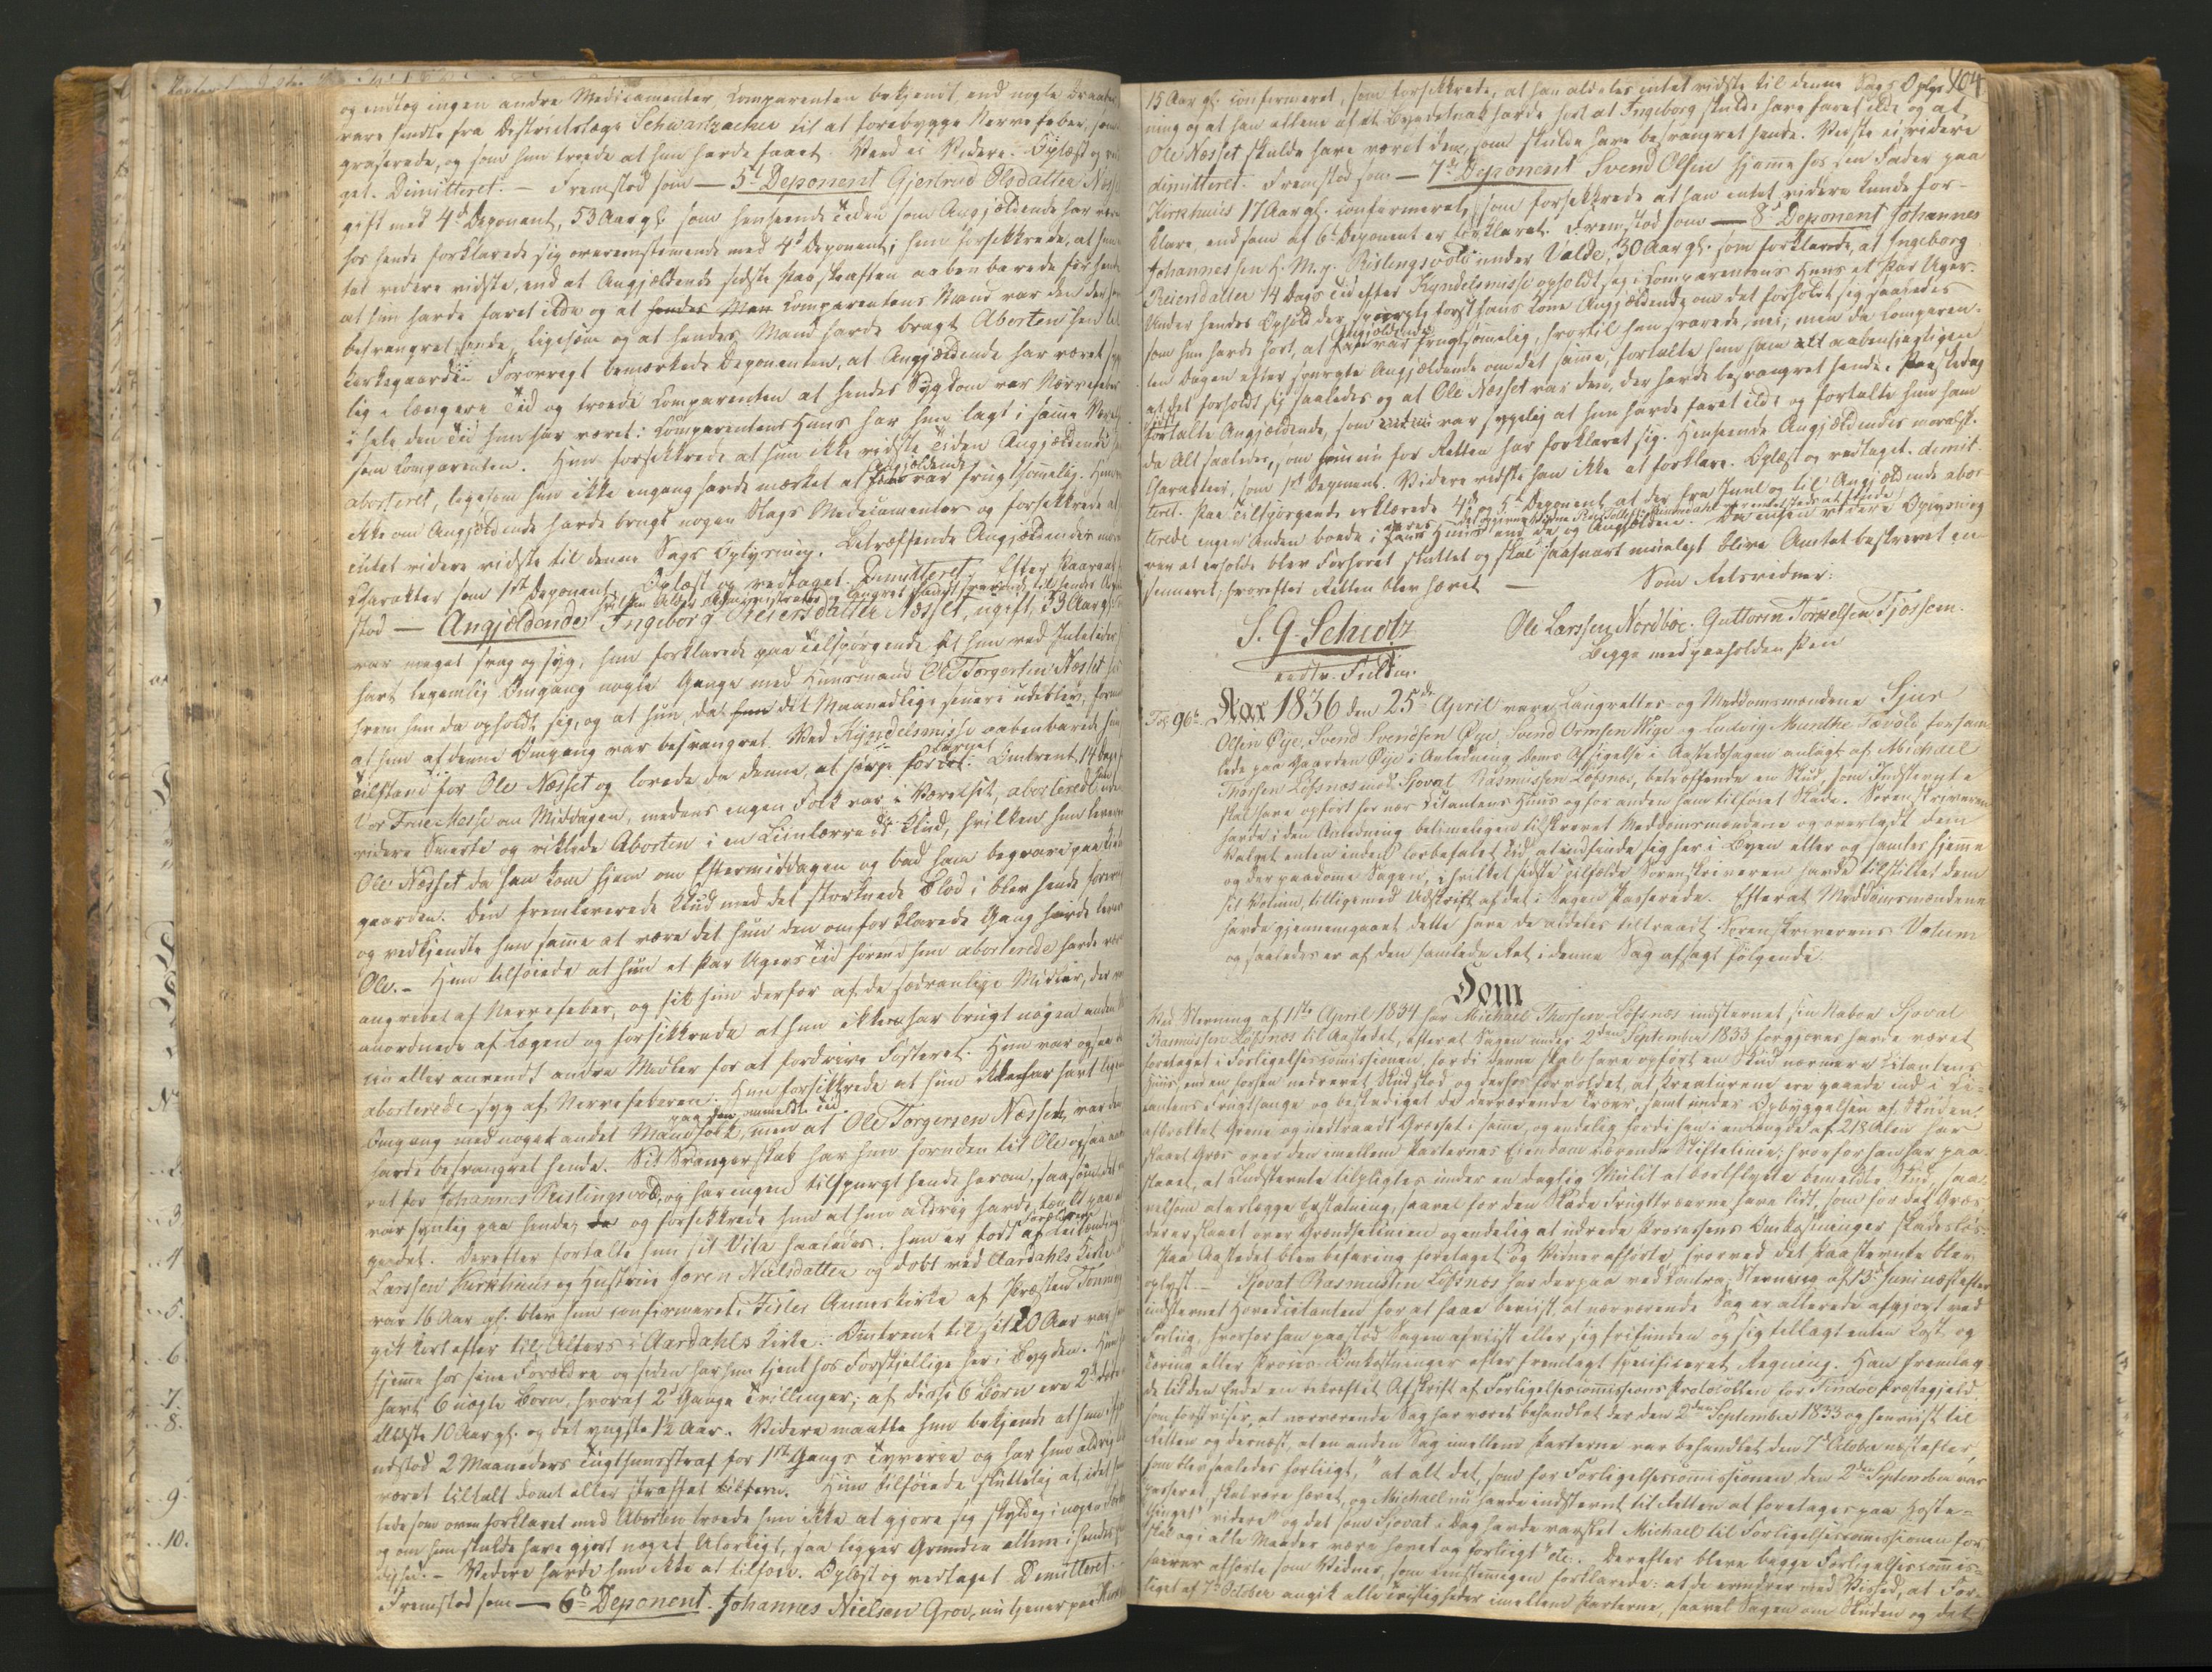 og indtog ingen andre Medicamenter, Comparenten bekjendt, end nogle Draaber,
vare sendte fra Destrictslæge Schwartzacher til at forebygge Nervefeber, som
grasserede, og som hun troede at hun havde faaet. Veed ei Videre. Oplæst og ved
get. Dimitteret. – Fremstod som – 5te Deponent Gjertrud Olsdatter Næss
gift med 4de Deponent, 53 Aar gl. som henseende Tiden som Angjældende har være
hos hende forklarede sig overeensstemmende med 4de Deponent; hun forsikkrede, at hun
tet videre vidste, end at Angjældende sidste Paaskeaften aabenbarede for hende
at hun havde faret ilde og at hendes Man Comparentens Mand var den der
besvangret hende, ligesom og at hendes Mand havde bragt Aborten hen til
Kirkegaarden. Forøvrigt bemærkede Deponenten, at Angjældende har været syg
lig i længere Tid og troede Comparenten at hendes Sygdom var Nervefeber
i hele den Tid hun har været i Comparentens Huus har hun lagt i samme Værelse
som Comparenten. Hun forsikkrede at hun ikke vidste Tiden Angjældende
aborteret, ligesom hun ikke engang havde mærket at Angjældende var frugtsommelig.
ikke om Angjældende havde brugt nogen Slags Medicamenter og forsikkrede at
intet videre vidste til denne Sags Oplysning. Betræffende Angjældendes mor
Charakter som 1ste Deponent. Oplæst og vedtaget. Dimitteret. Efter Paaraab
stod – Angjældende Ingeborg Reiersdatter Næsset, ugift, 33 Aar gl.
var meget svag og syg, hun forklarede paa Tilspørgende at hun ved Juletider
havt legemlig Omgang nogle Gange med Huusmand Ole Torgersen Næsset hos
hvem hun da opholdt sig, og at hun, da hun dit Maanedlige senere udeblev, fornam
at hun af denne Omgang var besvangret. Ved Kyndelsmisse aabenbarede hun
Tilstand for Ole Næsset og lovede da denne, at sørge for Barnet. Omtrent 14 Dage
Vor Frue Messe om Middagen, medens ingen Folk var i Værelset, aborterede hun uden
videre Smerte og viklede Aborten i en Liinlærreds Klud, hvilken hun leverede
Ole Næsset da han kom hjem om Eftermiddagen og bad ham begrave paa Kirke
gaarden. Den fremleverede Klud med det størknede Blod i blev hende foreviist
og vedkjendte hun samme at være det hun den omforklarede Gang havde leveret
Ole. – Hun tilføiede at hun et Par Ugers Tid førend hun aborterede havde været
angrebet af Nervefeber, og fik hun derfor af de sædvanlige Midler, der var
anordnede af Lægen og forsikkrede at hun ikke har brugt nogen anden
ciin eller anvendt andre Midler for at fordrive Fosteret. Hun var ogsaa da
aborterede syg af Nervefeberen. Hun forsikkrede at hun ikke har havt legem
Omgang med noget andet Mandfolk paa den ommeldte Tid, men at Ole Torgersen Næsset, var den
havde besvangret hende. Sit Svangerskab har hun foruden til Ole ogsaa aaben
ret for Johannes Ristingsvold, og har ingen tilspurgt hende herom, saasom det
var synlig paa hende, da og forsikkrede hun at hun aldrig havde tænkt paa at
gendet. Derefter fortalte hun sit Vita saaledes: Hun er født af Forældrene Reier
Larssen Kirkhuus og Hustrue Søren Nielsdatter og døbt ved Aardahls Kirke
var 16 Aar gl. blev hun confirmeret i Fister Annexkirke af Præsten Tønne
gik kort efter til Alters i Aardahls Kirke. Omtrent til sit 20 Aar var
hjemme hos sine Forældre og siden har hun tjent hos Forskjellige her i Bygden. Hun
havt 6 uægte Børn, hvoraf 2 Gange Tvillinger; af disse 6 Børn ere 2 døde
ældste 10 Aar gl. og det yngste 1½ Aar. Videre maatte hun bekjende at hun
udstod 2 Maaneders Tugthuusstraf for 1ste Gangs Tyverie og har hun aldrig
været tiltalt dømt eller straffet tilforn. Hun tilføiede sluttelig at, idet hun
lede som oven forklaret med Aborten troede hun ikke at gjøre sig skyldig i nogen
og om hun skulde have gjort noget Ulovligt, saa ligger Grunden allene i hendes
dighed. – Videre havde hun ikke at tilføie. Oplæst og vedtaget Demitteret.
Fremstod som – 6te Deponent. Johannes Nielsen Groe, nu tjener paa Kirk
104
15 Aar gl. confirmeret, som forsikkrede, at han aldeles intet vidste til denne Sags Oplys
ning og at han allene af et Bygdesnak havde hørt at Ingeborg skulde have faret ilde og at
Ole Næsset skulde have været den, som skulde have besvangret hende. Vidste ei videre
dimitteret. Fremstod som – 7de Deponent Svend Olsen hjemme hos sin Fader paa
Kirkhuus 17 Aar gl. confirmeret, som forsikkrede at han intet videre kunde for-
klare end som af 6te Deponent er forklaret. Fremstod som – 8de Deponent Johannes
Johannessen H. M. p. Ristingsvold under Valde, 30 Aar gl. som forklarede, at Ingeborg
Reiersdatter 14 Dags Tid efter Kyndelsmisse opholdt sig i Comparentens Huus et Par Uger.
Under hendes Ophold der spurgte først hans Kone Angjældende om det forholdt sig saaledes
som hun havde hørt, at Angjældende var frugtsommelig, hvortil hun svarede, nei; men da Comparen-
ten Dagen efter spurgte Angjældende om det samme, fortalte hun ham alt aabenhjertigen
at det forholdt sig saaledes og at Ole Næsset var den, der havde besvangret hende. Paaskedag
fortalte Angjældende, som var sygelig at hun havde faret ilde og fortalte hun ham
da Alt saaledes, som hun nu for Retten har forklaret sig. Henseende Angjældendes moralsk.
Charakteer, som 1ste Deponent. Videre vidste han ikke at forklare. Oplæst og vedtaget. dimit-
teret. Paa Tilspørgende erklærede 4de og 5te Deponent at der fra Juul og til Angjældende abor
terede ingen Anden boede i deres Huus end de og Angjældende. Da ingen videre Oplysning
var at erholde blev Forhøret sluttet og skal saasnart mueligt blive Amtet beskrevet in
sinneret, hvorefter Retten blev hævet –
Som Retsvidner:
S. G. Schiøtz
Ole Larssen Nordbøe. Guttorm Torkelsen Tjøssem.
Begge med paaholden Pen
Fol. 96b. Aar 1836 den 25de April vare Laugrettes- og Meddomsmændene Sjur
Olsen Øye, Svend Svendsen Øye, Svend Ormsen Wige og Ludvig Munthe Tævold, forsam
lede paa Gaarden Øye i Anledning Doms Afsigelse i Aastedssagen anlagt af Michael
Thorsen Løfsnæs mod Sjovat Rasmussen Løfsnæs, betræffende en Skud, som Indstevnte
skal have opført for nær Citantens Huus og for anden ham tilføiet Skade. Sorenskriveren
havde i den Anledning betimeligen tilskrevet Meddomsmændene og overladt dem
Valget enten inden lovbefalet Tid at indfinde sig her i Byen eller og samles hjemme
og der paadømme Sagen, i hvilket sidste Tilfælde Sorenskriveren havde tilstillet dem
sit Votum, tilligemed Udskrift af det i Sagen Passerede. Efterat Meddomsmændene
havde gjennemgaaet dette have de aldeles tiltraadt Sorenskriverens Votum
og saaledes er af den samlede Ret i denne Sag afsagt følgende
Dom
Ved Stevning af 1ste April 1834 har Michael Thorsen Løfsnæs indstevnet sin Naboe Sjovat
Rasmussen Løfsnæs til Aastedet, efterat Sagen under 2den September 1833 forgjeves havde været
foretaget i Forligelsescommissionen, fordi denne skal have opført en Skud nærmere Citantens
Huus, end en forhen nedrevet Skud stod og derhos forvoldet, at Kreaturene ere gaaede ind i Ci-
tantens Frugthauge og beskadiget de derværende Træer, samt under Opbyggelsen af Skuden
afbrækket Grene og nedtraadt Græsset i samme, og endelig fordi han i en Længde af 218 Alen har
slaaet Græs over den imellem Parternes Eiendom værende Skiftelinie; hvorfor han har paa-
staaet, at Indstevnte tilpligtes under en daglig Mulct at bortflytte bemeldte Skud, saa-
velsom at erlægge Erstatning, saavel for den Skade Frugttræerne have lidt, som for det Græs,
der er slaaet over Grændselinien og endelig at udrede Processens Omkostninger skadesløs.
Paa Aastedet blev Befaring foretaget og Vidner afhørte, hvorved det Paastevnte blev
oplyst. – Sjovat Rasmussen Løfsnæs har derpaa ved Contra-Stevning af 13de Juni næstefter
indstevnet Hovedcitanten for at faae beviist, at nærværende Sag er allerede afgjort ved
Forlig, hvorfor han paastod Sagen afviist eller sig frifunden og sig tillagt enten Kost og
Tæring eller Proces-Omkostninger efter fremlagt specificeret Regning. Han fremlag
de til den Ende en bekræftet Afskrift af Forligelsescommissions Protocollen for Findøe Præstegjeld
som først viser, at nærværende Sag har været behandlet der den 2den September 1833 og henviist til
Retten og dernæst, at en anden Sag imellem Parterne var behandlet den 7de October næstefter,
som blev saaledes forliigt, "at alt det, som for Forligelsescommissionen den 2den September var
passeret, skal være hævet, og Michael nu havde indstevnt til Retten at foretages paa Høste-
thinget" videre "og det som Sjovat i Dag havde varslet Michael til Forligelsescommissionen for
skal og i alle Maader være hævet og forliigt" etc. Derefter bleve begge Forligelsescommis-
sairer afhørte som Vidner, som eenstemmigen forklarede: at de erindrer med Vished, at For-
liget af 7de October angik alle Tvistigheder imellem Parterne, saavel Sagen om Skuden og det